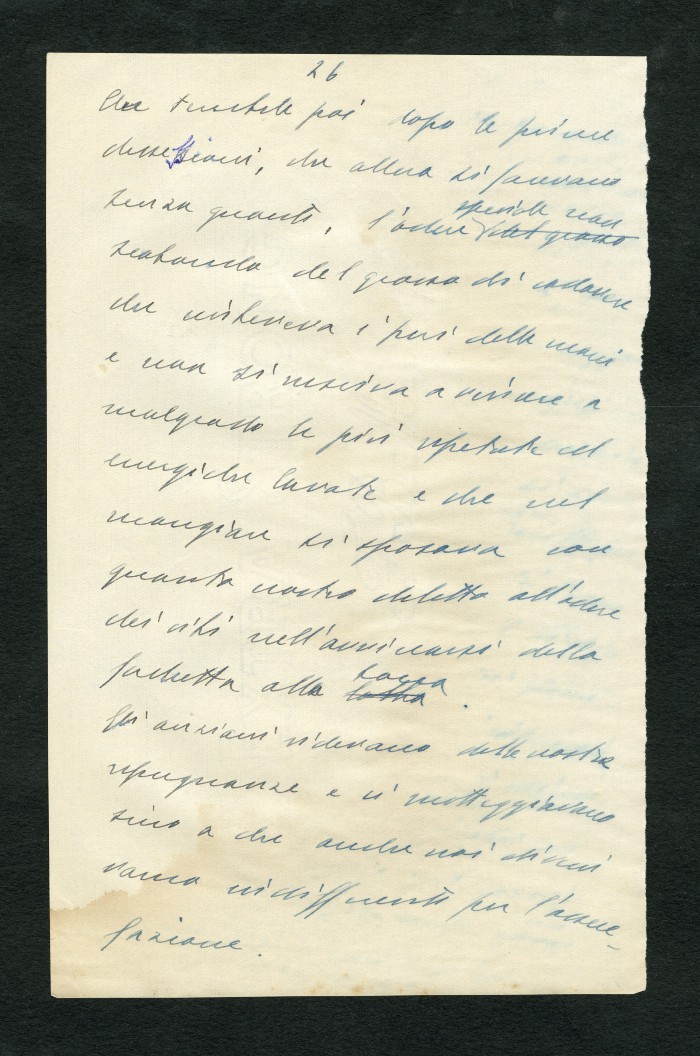 26
Che turbata poi dopo le prime
dissezioni, che allora si facevano
senza guanti, l'odore speciale non
del grasso
del grasso di cadavere
che misteneva i pori delle mani
e non si riusciva a
malgrado le più ripetute ed
energiche lavate e che nel
mangiare si sposava con
quanto nostro diletto all'odore
dei cibi nell'avvicinarsi della
forchetta alla bocca
.
Gli anziani ridevano delle nostre
ripugnanze e ci motteggiavano
sino a che anche noi diveni
vamo indifferenti per l'assue-
fazione.